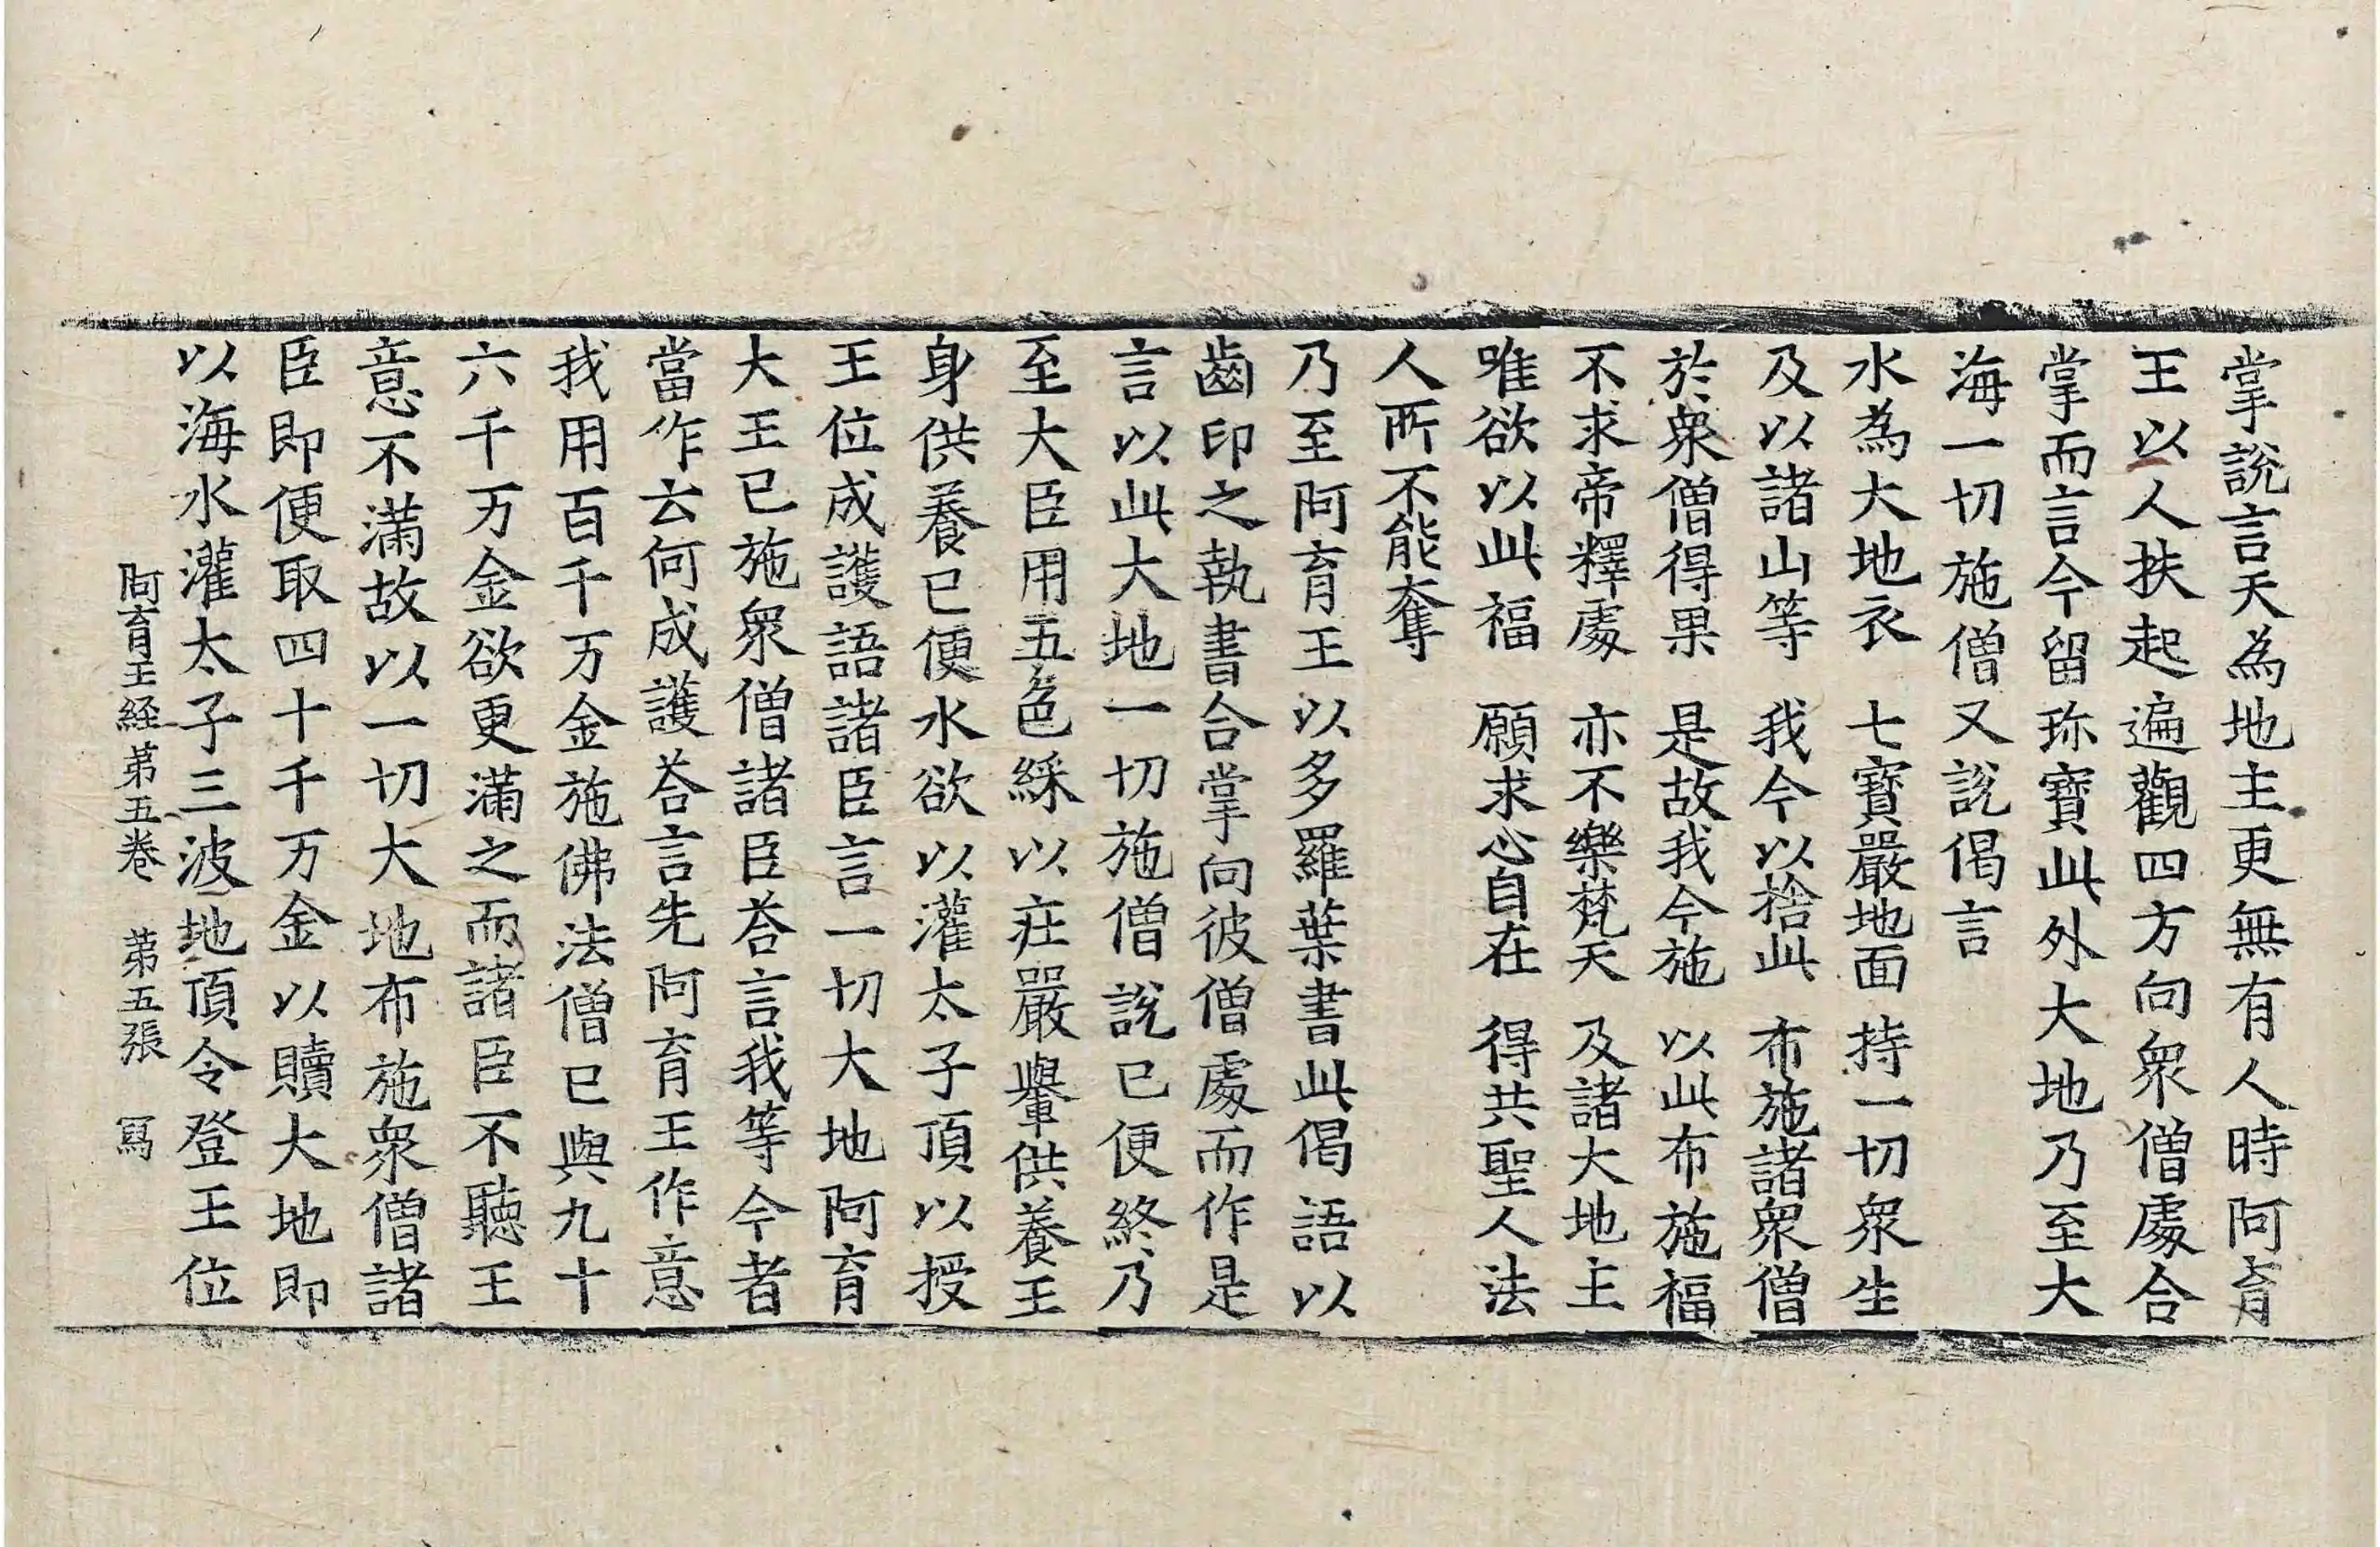 掌說言天為地主更無有人時阿育
王以人扶起遍觀四方向衆僧處合
掌而言今留珎寶此外大地乃至大
海一切施僧又說偈言
水為大地衣　七寶嚴地面　持一切衆生
及以諸山等　我今以捨此　布施諸衆僧
於衆僧得果　是故我今施　以此布施福
不求帝釋處　亦不樂梵天　及諸大地主
唯欲以此福　願求心自在　得共聖人法
人所不能奪
乃至阿育王以多羅葉書此偈語以
齒印之執書合掌向彼僧處而作是
言以此大地一切施僧說已便終乃
至大臣用五色綵以莊嚴轝供養王
身供養已便水欲以灌太子頂以授
王位成護語諸臣言一切大地阿育
大王已施衆僧諸臣荅言我等今者
當作云何成護荅言先阿育王作意
我用百千万金施佛法僧已與九十
六千万金欲更滿之而諸臣不聽王
意不滿故以一切大地布施衆僧諸
臣即便取四十千万金以贖大地即
以海水灌太子三波地頂令登王位
阿育王経苐五巻　苐五張　冩